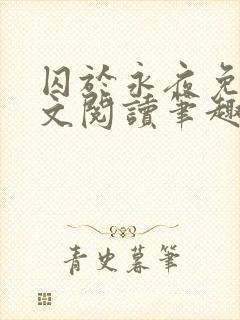 囚於永夜免
文閱讀筆趣
青史暮筆